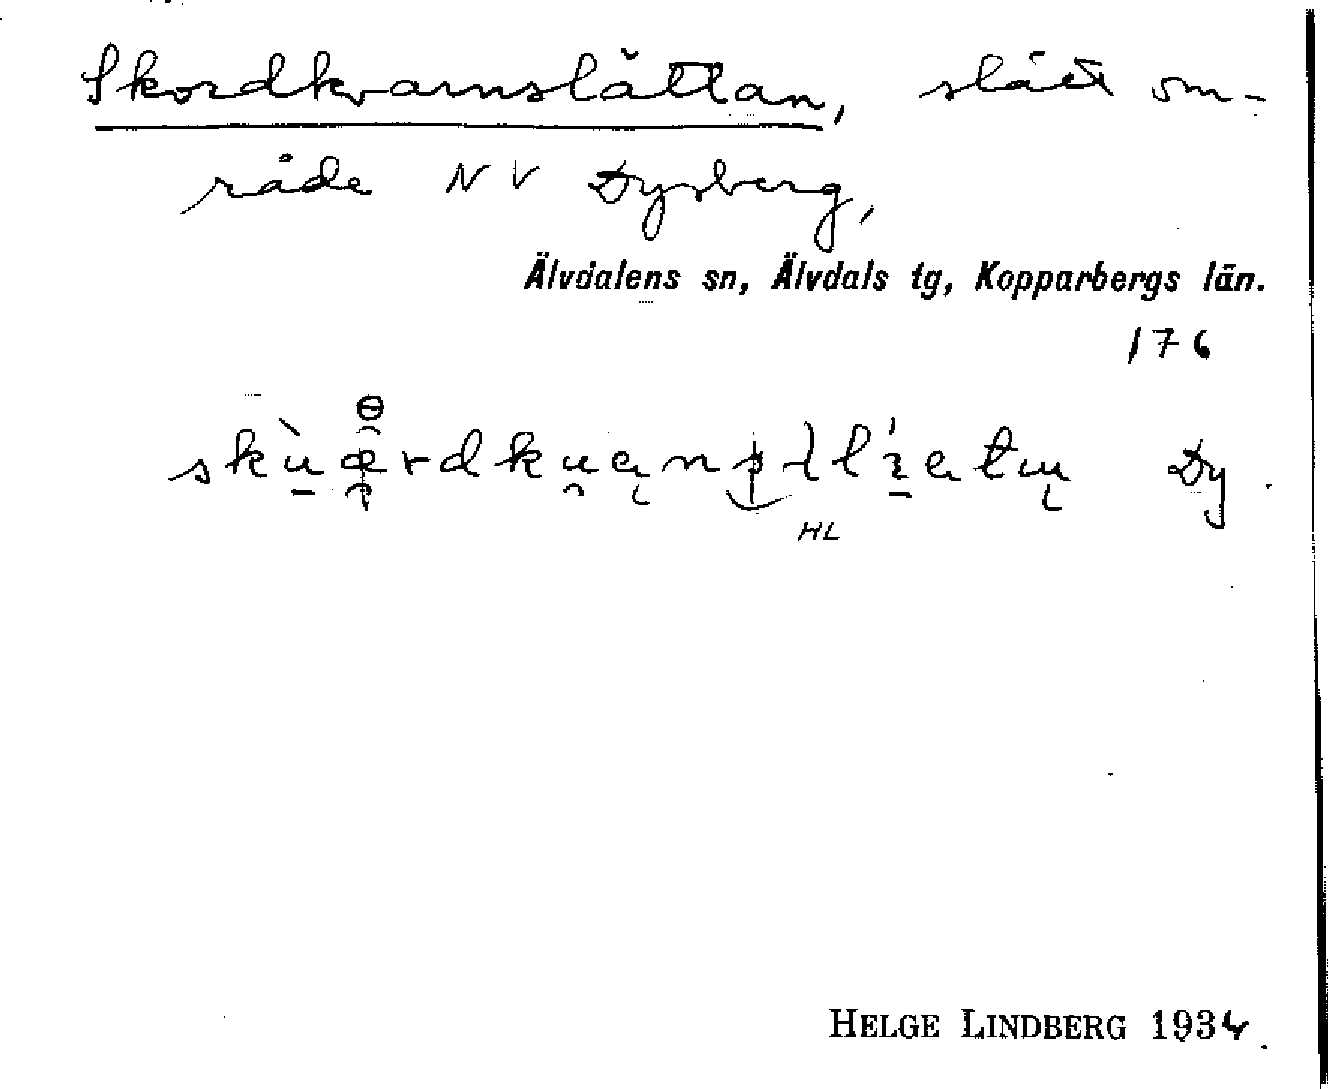 Skordkvarnslåttan, slått om-
råde NV Dysberg,
Älvdalens sn, Älvdals tg, Kopparbergs län.
176
Dy.
HL
HELGE LINDBERG 1934